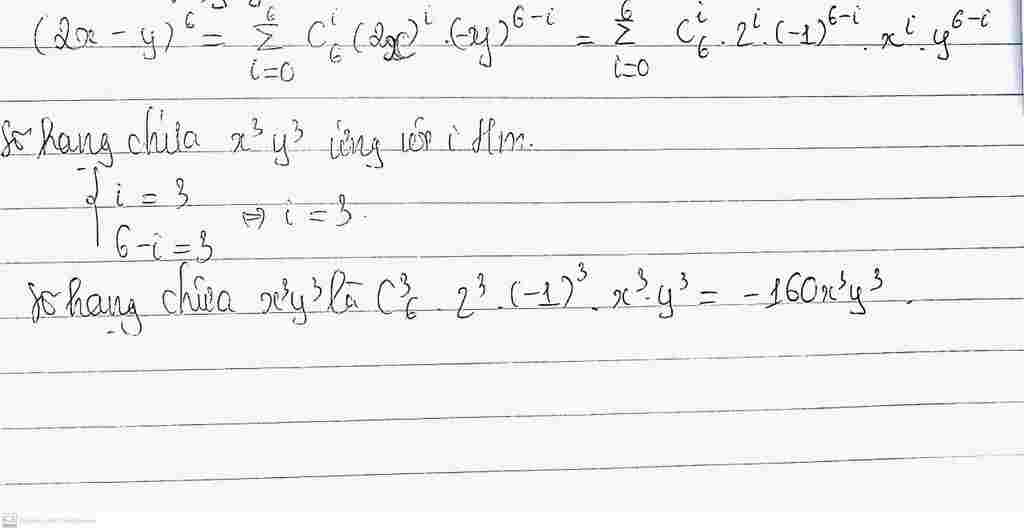 (2x - y)^6 = Σ_{i=0}^{6} C_6^i (2x)^i . (-y)^{6-i} = Σ_{i=0}^{6} C_6^i . 2^i . (-1)^{6-i} . x^i . y^{6-i}
Số hạng chứa x^3 y^3 ứng với i t/m.
{ i = 3
6 - i = 3 ⇔ i = 3.
Số hạng chứa x^3y^3 là C_6^3 . 2^3 . (-1)^3 . x^3 . y^3 = -160x^3y^3.